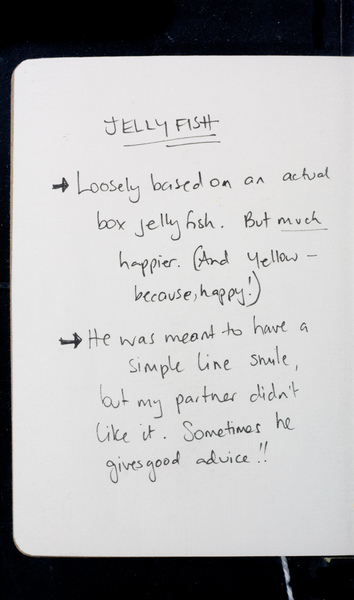 JELLY FISH
→ Loosely based on an actual
box jelly fish. But much
happier. (And Yellow -
because, happy!)
→ He was meant to have a
simple line smile,
but my partner didn't
like it. Sometimes he
gives good advice!!